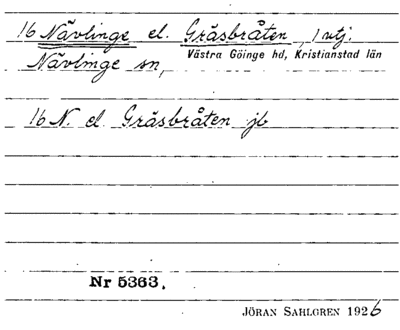 16 Nävlinge el. Gräsbråten, 1 utj.
Nävlinge sn, Västra Göinge hd, Kristianstad län
16 N. el Gräsbråten jb
Nr 5363.
JÖRAN SAHLGREN 1926